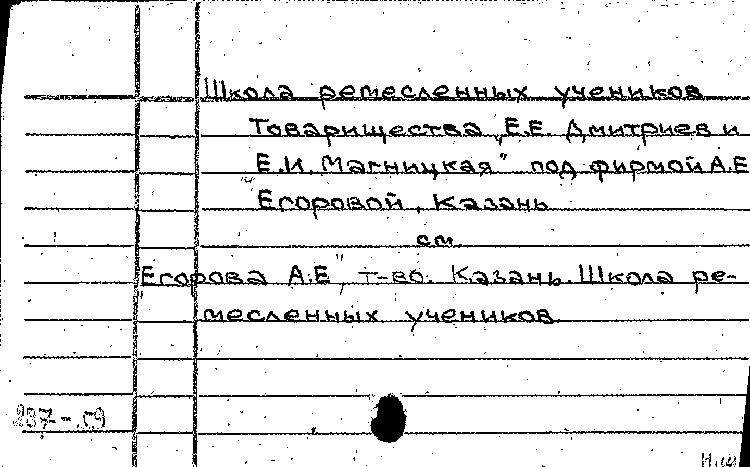 Школа ремесленных учеников
Товарищества „Е.Е. Дмитриев и
Е.И. Магницкая" под фирмой А.Е
"Егоровой, Казань
см.
Егорова А.Е", т-во. Казань. Школа ре-
месленных учеников.
237-59